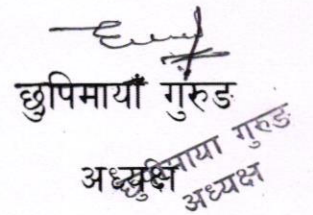 छुपिमायाँ गुरुङ
अध्यक्ष
छुपिमाया गुरुङ
अध्यक्ष